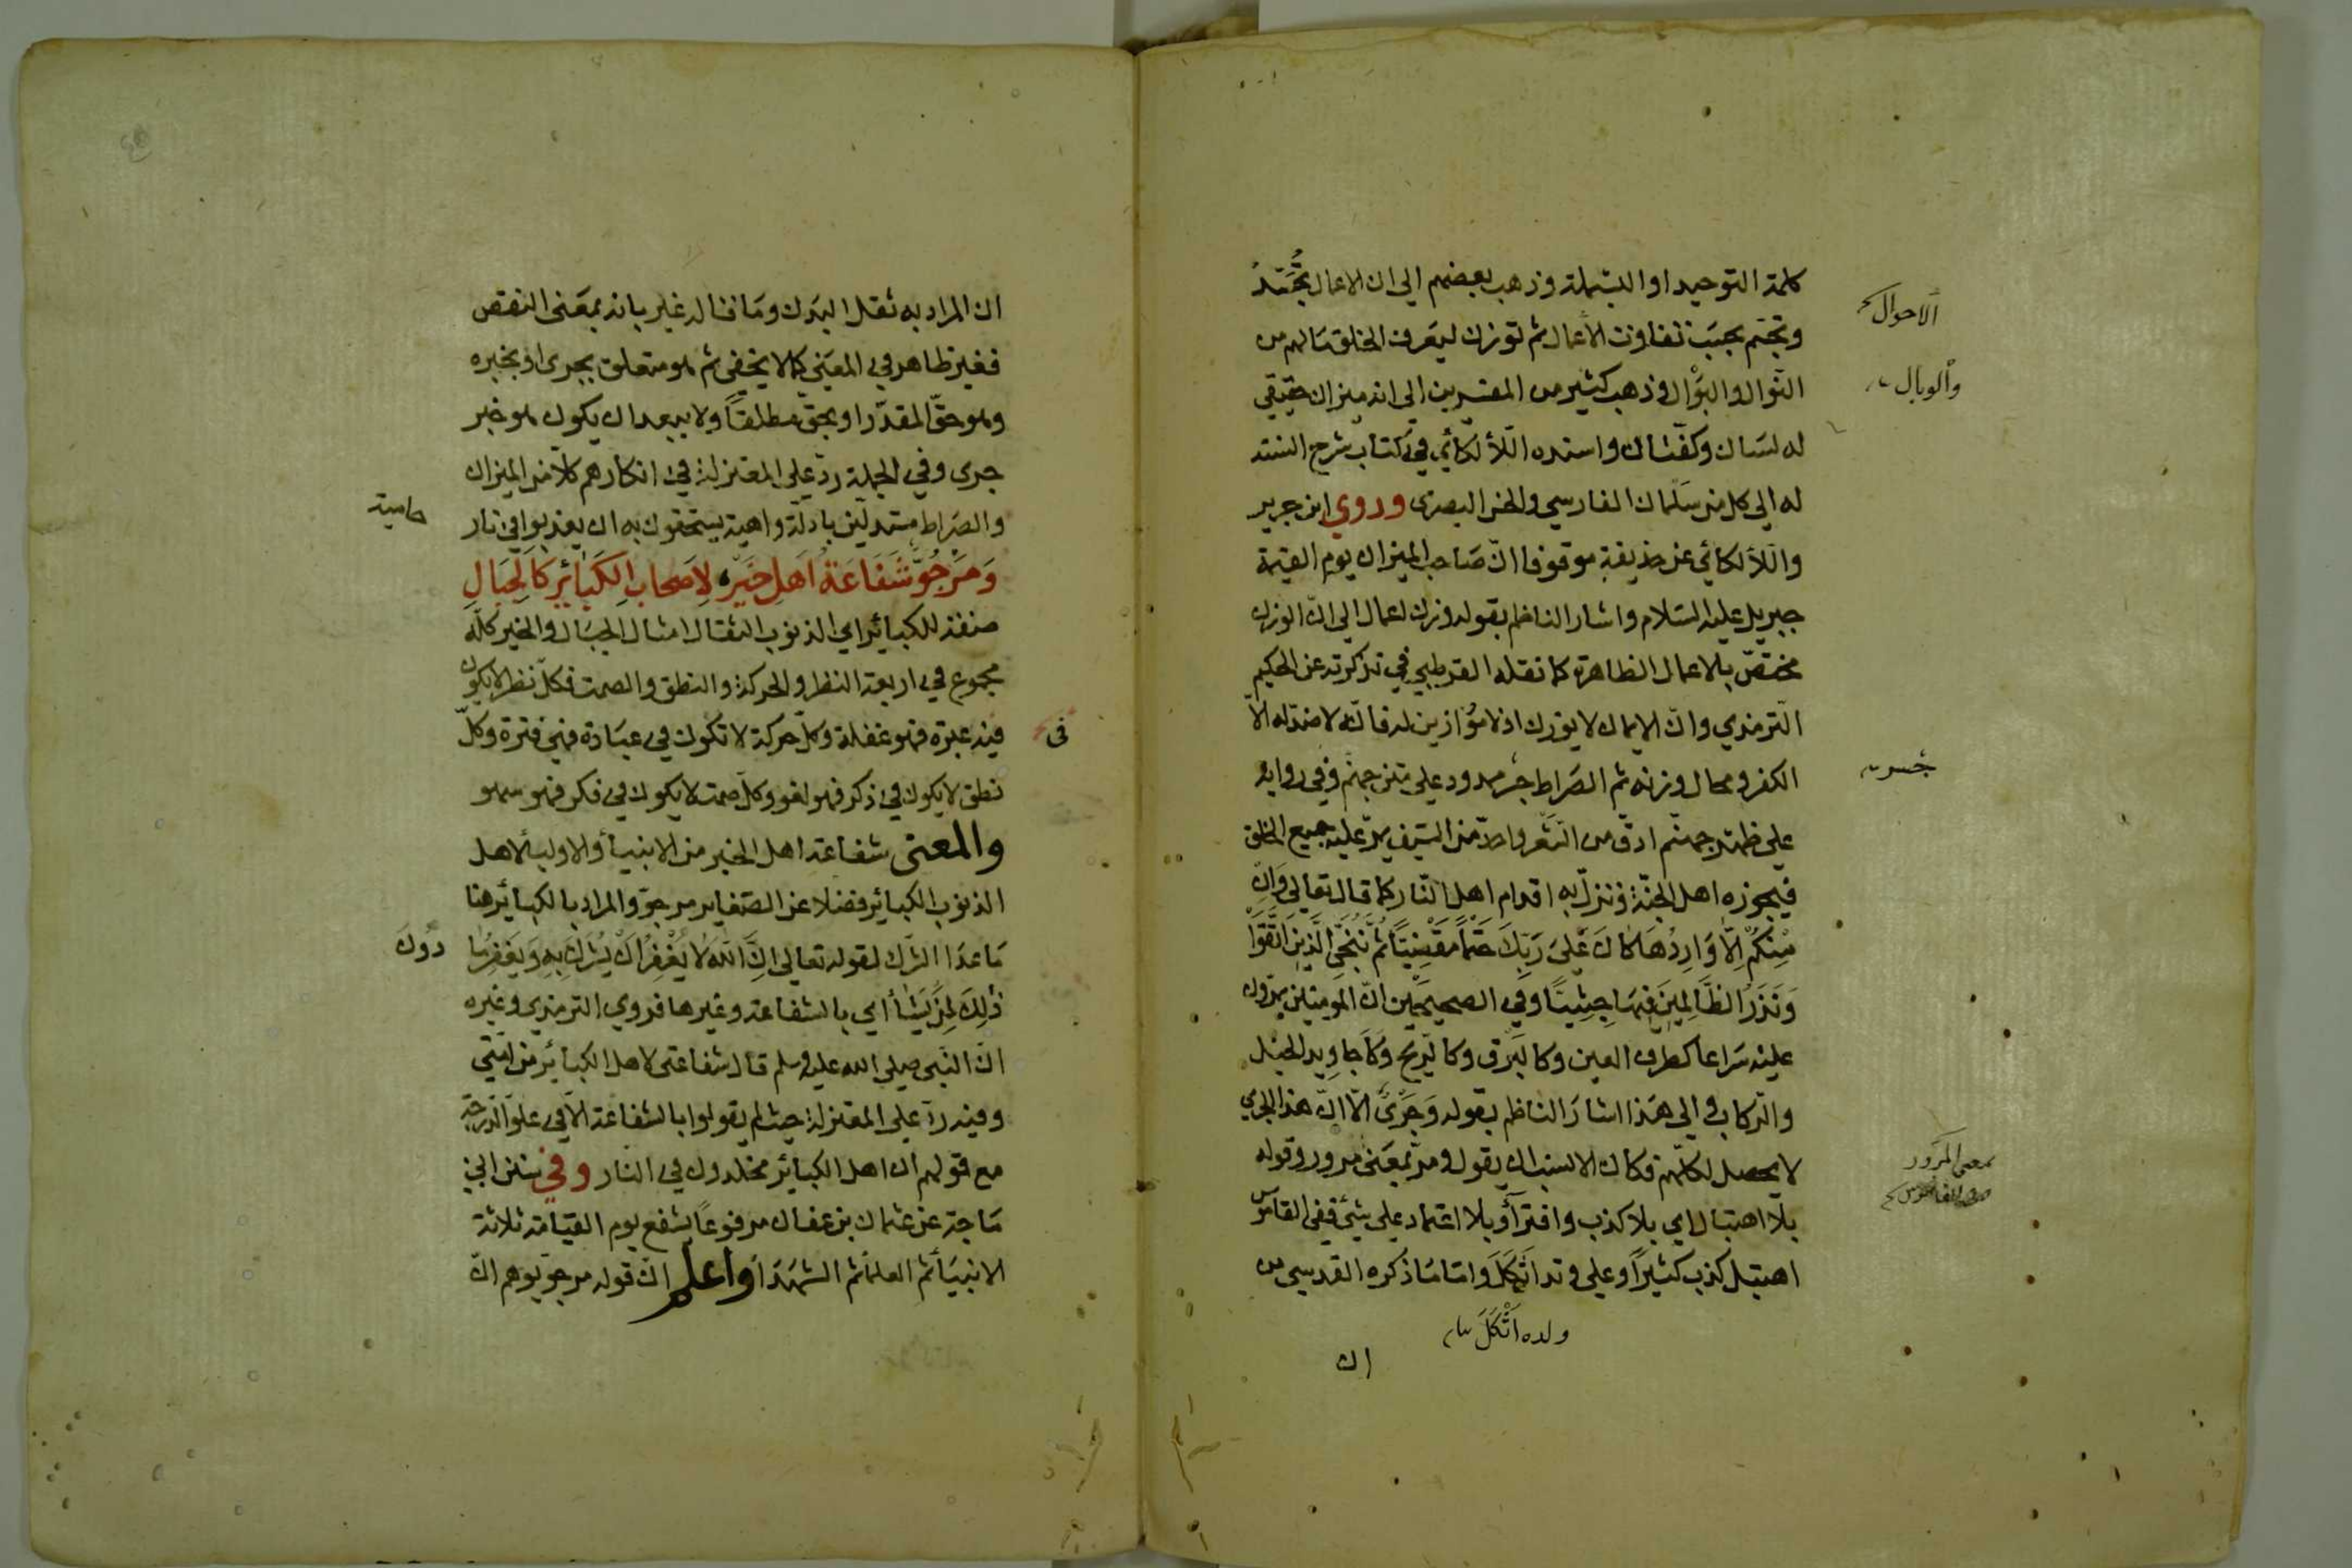 كلمة التوحيد او البسملة وذهب بعضهم الى ان الاعمال تجسّد
وتجسم بحسب تفاوت الأعمال ثم توزن ليعرف الخلق مالهم من
النوال والبوال وذهب كثير من المفسرين الى انه ميزان حقيقي
له لسان وكفّتان واسنده اللألكائي في كتاب شرح السنة
له الى كل من سلمان الفارسي والحسن البصرى وروي ابن جرير
واللألكائي عن حذيفة موقوفا انّ صاحب الميزان يوم القيمة
جبريل عليه السلام واشار الناظم بقوله وزن اعمال الى انّ الوزن
مختصّ بالاعمال الظاهرة كما نقله القرطبي في تذكرته عن الحكيم
الترمذي وانّ الايمان لا يوزن اذ لا موازين له فانّه لا ضدّ له الاّ
الكفر ومحال وزنه ثم الصراط جسر ممدود على متن جهنم وفي رواية
على ظهر جهنّم ادق من الشعر واحدّ من السّيف يمرّ عليه جميع الخلق
فيجوزه اهل الجنّة وتزلّ به اقدام اهل النّار كما قال تعالى وَاِنْ
مِنْكُمْ اِلَّا وَارِدُهَا كَانَ عَلىَ رَبِّكَ حَتْماً مَقْضِيّاً ثُمَّ نُنَجِّي الَّذِينَ اتَّقَوْا
وَنَذَرُ الظَّالِمِينَ فِيهَا جِثِيّاً وفي الصحيحين انّ المومنين يمرّون
عليه سراعا كطرف العين وكالبرق وكالريح وكاجاويد الخيل
والرّكاب والى هذا اشار الناظم بقوله وَجَرْىٌ الّا انّ هذا الجري
لا يحصل لكلّهم فكان الانسب ان يقول ومرّ بمعنى مرور وقوله
بلا اهتبال اي بلا كذب وافترآء وبلا اعتماد على شئ ففي القاموس
اهتبل كذب كثيراً وعلى ولده اتّكَلَ واما ما ذكره القدسي من
ولده اتّكَلَ
ان
الاحوال
والوبال
جسر
بمعنى المرور
ان المراد به ثقل البدن وما قاله غيره بانه بمعنى النقص
فغير ظاهر في المعنى كما لا يخفى ثم هو متعلق بجرى او بخبره
وهو حقّ المقدّر او بحق مطلقاً ولا يبعد ان يكون هو خبر
جرى وفي الجملة ردّ على المعتزلة في انكارهم كلّا من الميزان
والصراط مستدلين بادلّة واهية يستحقون به ان يعذبوا في نار
حامية
وَمَرْجُوٌّ شَفَاعَةُ اَهلِ خَيْرٍ لِاَصحابِ الكَبَائِرِ كَالجِبَالِ
صفة للكبائر اي الذنوب الثقال امثال الجبال والخير كلّه
مجموع في اربعة النظر والحركة والنطق والصمت فكلّ نظر لا يكون
فيه عبرة فهو غفلة وكلّ حركة لا تكون في عبادة فهي فترة وكلّ
فى
نطق لا يكون في ذكر فهو لغو وكلّ صمت لا يكون في فكر فهو سهو
والمعنى شفاعة اهل الخير من الانبيأ والاوليأ لاهل
الذنوب الكبائر فضلا عن الصّغاير مرجوّ والمراد بالكبائر هنا
مَا عدا الشّرك لقوله تعالى اِنَّ اللّهَ لَا يَغْفِرُ اَنْ يُشْرَكَ بِهِ وَيَغْفِرُ مَا
دُونَ
ذٰلِكَ لِمَنْ يَشَأ اي بالشفاعة وغيرها فروي الترمذي وغيره
انّ النّبي صلى الله عليه وسلم قال شفاعتى لاهل الكبائر من امّتي
وفيه ردّ على المعتزلة حيث لم يقولوا بالشفاعة الّا في علوّ الدّرجة
مع قولهم ان اهل الكبائر مخلدون في النار وفي سنن ابن
ماجة عن عثمان بن عفان مرفوعاً يشفع يوم القيامة ثلاثة
الانبيأ ثم العلمأ ثم الشهدأ واعلم انّ قوله مرجوّ يوهم انّ